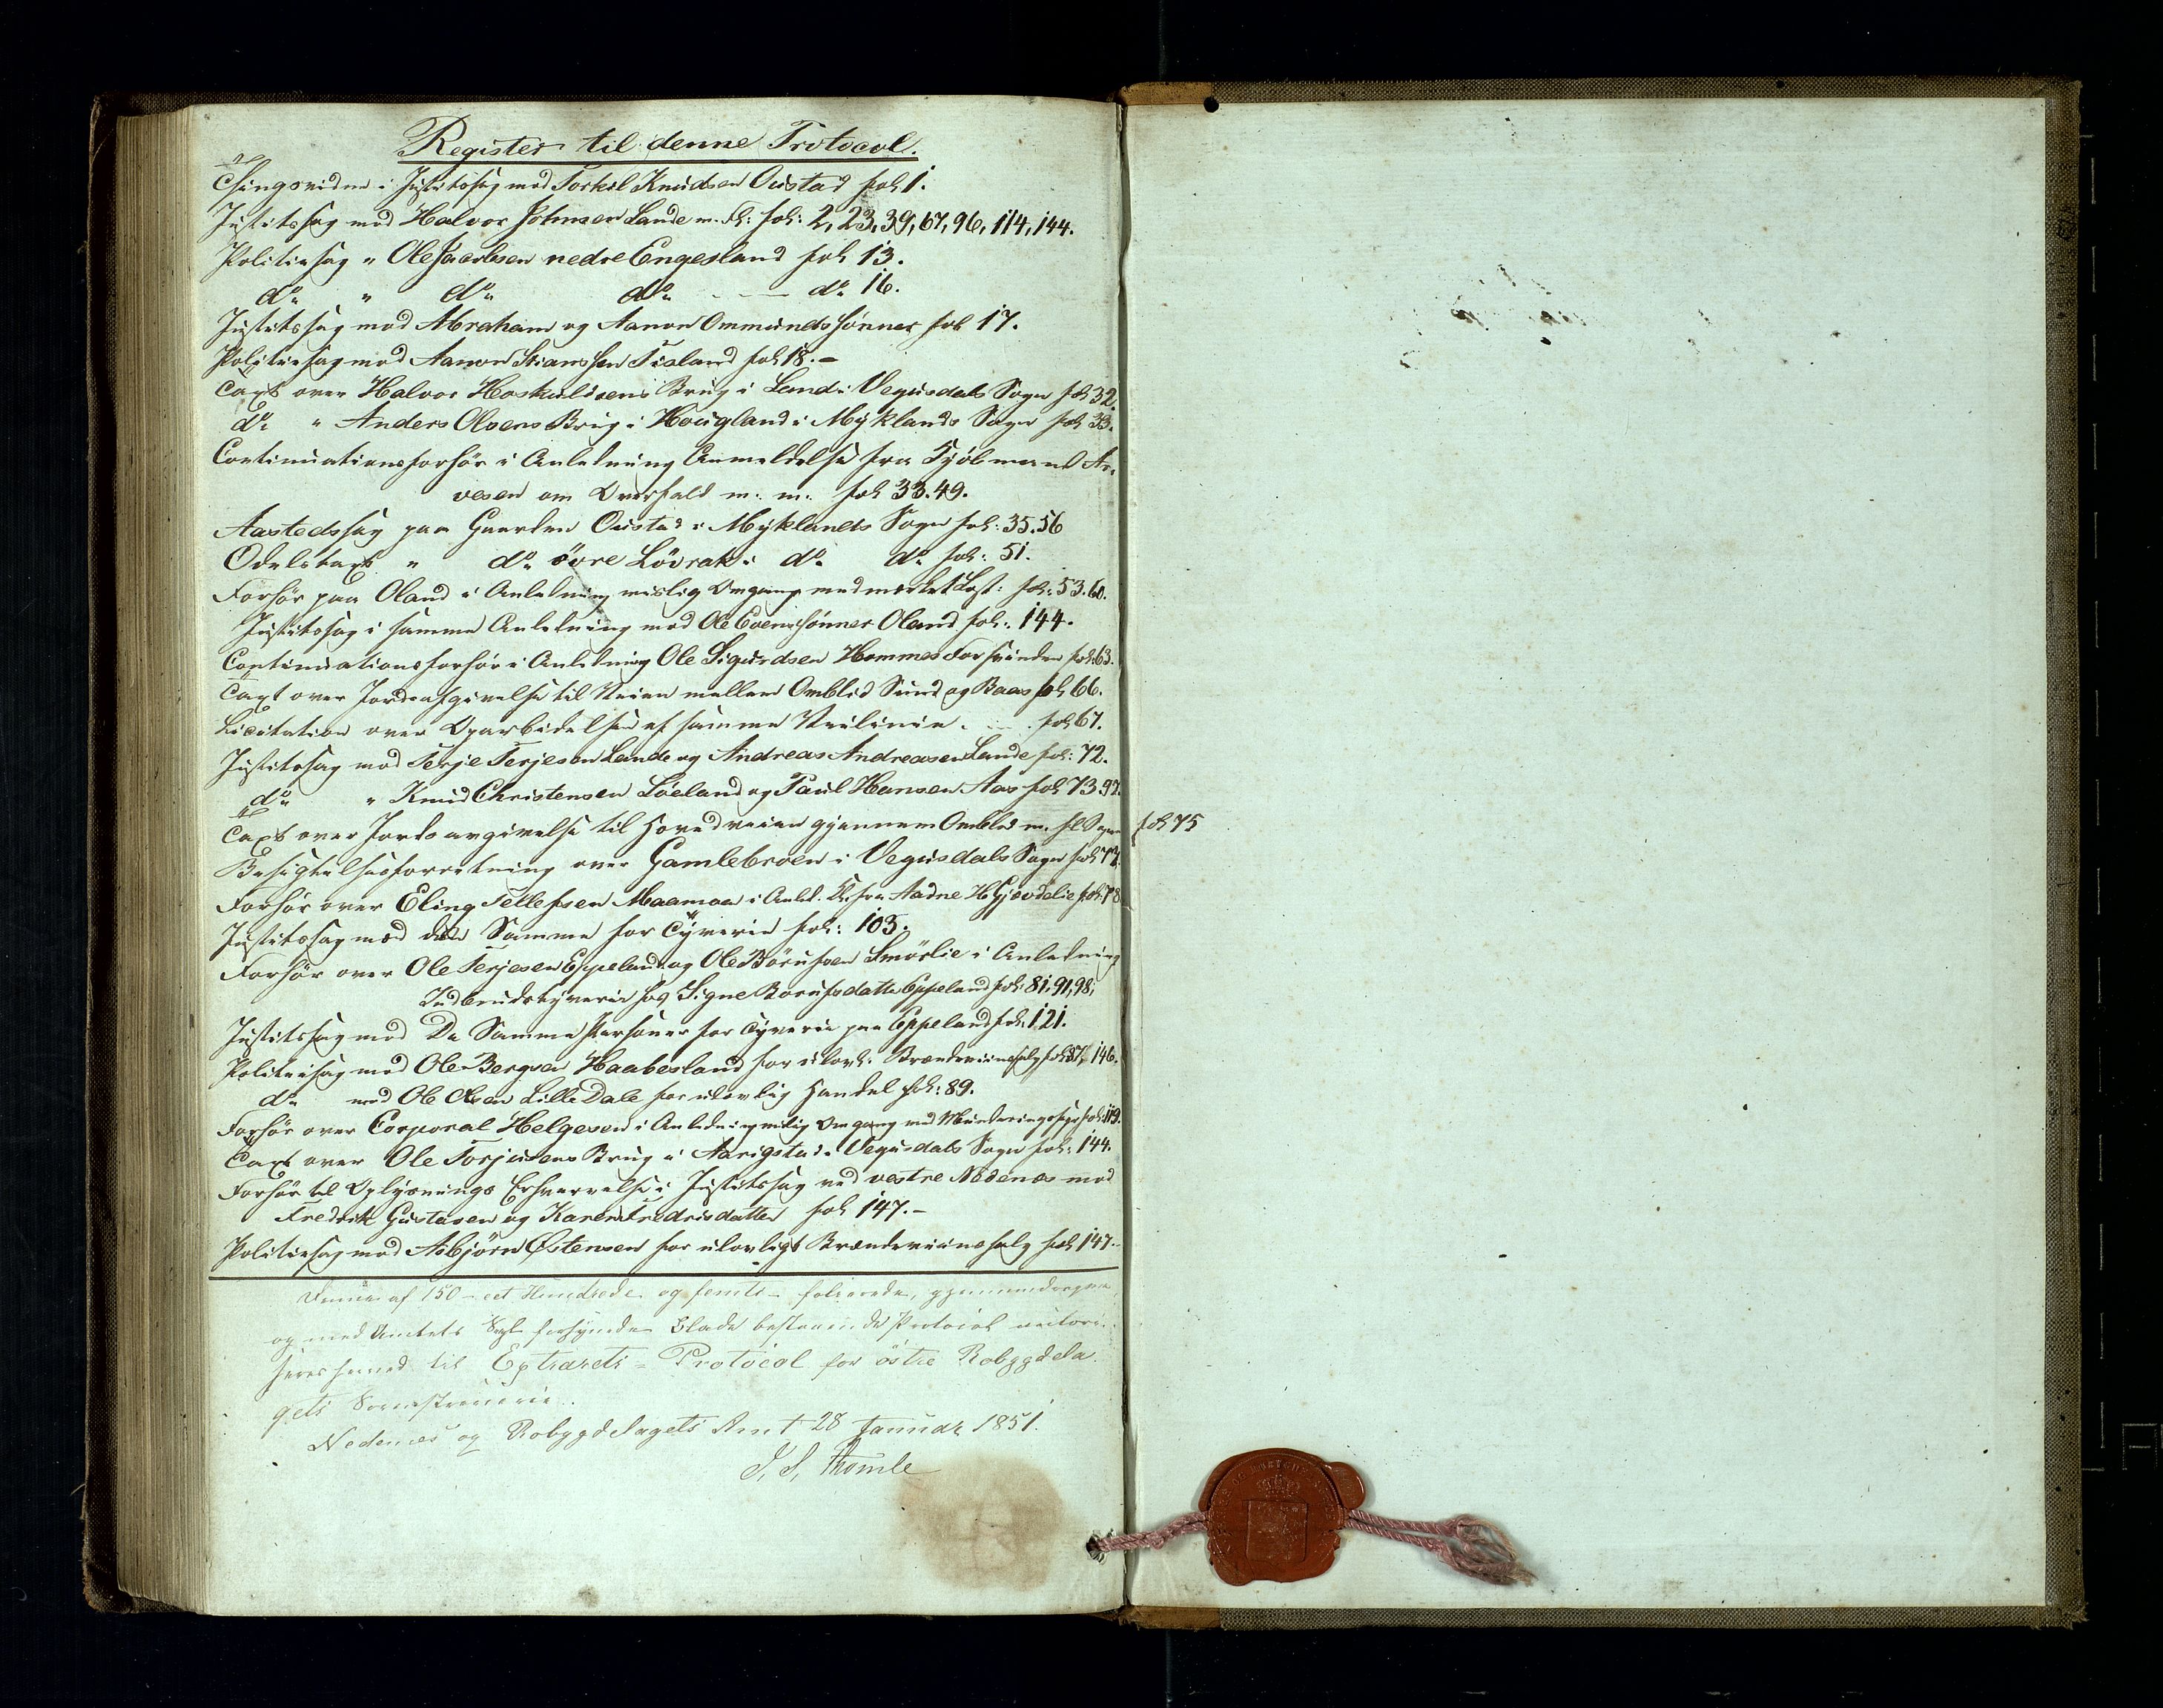 Register til denne Protocol.
Thingsvidne i Justitssag mod Torkel Knudsen Oustad fol 1.
Justitssag mod Halvor Johnsen Lande m. Fl: fol: 2, 23, 39, 67, 96, 114, 144.
Politiesag " Ole Jacobsen nedre Engesland fol 13.
do " do do do 16.
Justitssag mod Abraham og Aanon Ommundssønner fol 17.
Politiesag mod Aanon Stianssen Tisland fol 18.-
Taxt over Halvor Hoskuldsens Brug i Land i Vegusdals Sogn fol 32.
do " Anders Olsens Brug i Hougland i Myklands Sogn fol 33.
Continuationsforhør i Anledning Anmeldelse fra Kjøbmand Ar-
vesen om Overfald m. m. fol 33. 49.
Aastedssag paa Gaarden Oustad i Myklands Sogn fol: 35. 56
Odelstaxt " do øvre Løvrak i do do fol: 51.
Forhør paa Oland i Anledning mislig Omgang med mærket Last: fol: 53. 60.
Justitssag i samme Anledning mod Ole Evenssønner Oland fol: 144.
Continuationsforhør i Anledning Ole Sigurdsen Hommes Forsvinden fol: 63.
Taxt over Jordafgivelse til Veien mellem Omblid Sund og Baas fol 66.
Licitation over Oparbeidelsen af samme Veilinie. fol 67.
Justitssag mod Terje Terjesen Lande og Andreas Andreasen Lande fol: 72.
do " Knud Christensen Løeland og Paul Hansen Aas fol 73. 97.
Taxt over Jords avgivelse til Hovedveien gjennem Omblid m. fl Sogne fol 75
Besigtelsesforretning over Gamlebroen i Vegusdals Sogn fol 77.
Forhør over Eling Tellefsen Maamoa i Anled. Kl. fra Aadne H. Gjævdelie fol: 78
Justitssag mod den Samme for Tyverie fol: 103.
Forhør over Ole Terjesen Eppeland og Ole Børufsen Smørlie i Anledning
Indbrudstyverie hos Signe Børufsdatter Eppeland fol: 81, 91, 98,
Justitssag mod De Samme Personer for Tyverie paa Eppeland fol: 121.
Politiesag mod Ole Bergsen Haabesland for ulovl. Brændeviinssalg fol: 87, 146.
do mod Ole Olsen Lille Dale for ulovlig Handel fol: 89.
Forhør over Corporal Helgesen i Anledning mislig Omgang med Munderingssager fol: 119.
Taxt over Ole Torjusens Brug i Aarigstad i Vegusdals Sogn fol: 144.
Forhør til Oplysnings Erhvervelse i Justitssag ved vestre Nedenæs mod
Fredrik Gustasen og Karen Fredriksdatter fol 147.-
Politiesag mod Asbjørn Østensen for ulovligt Brændeviinssalg fol 147.
Denne af 150 - eet Hundrede og femti - folierede, gjennemdragne
og med Amtets Segl forsynede Blade bestaaende Protocol autori-
seres herved til Extrarets-Protocol for østre Robygdela-
gets Sorenskriverie.
Nedenæs og Robygdelagets Amt 28 Januar 1851.
J. S. Thomle